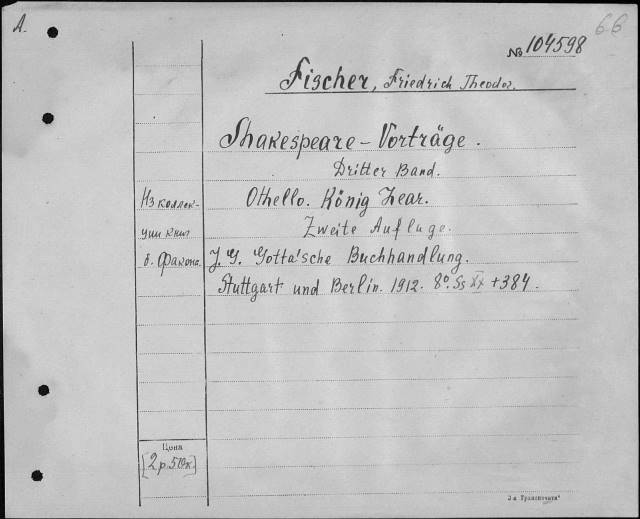 A.
66
№ 104598
Fischer, Friedrich Theodor.
Shakespeare – Vorträge.
Dritter Band.
Othello. König Lear.
Zweite Aufluge.
J. G. Gotta'sche Buchhandlung.
Stuttgart und Berlin. 1912. 8º. Ss XX + 384.
Из коллек-
ции книг
б. Факона.
Цена
[2 р. 50 к.]
3-я Транспечать"